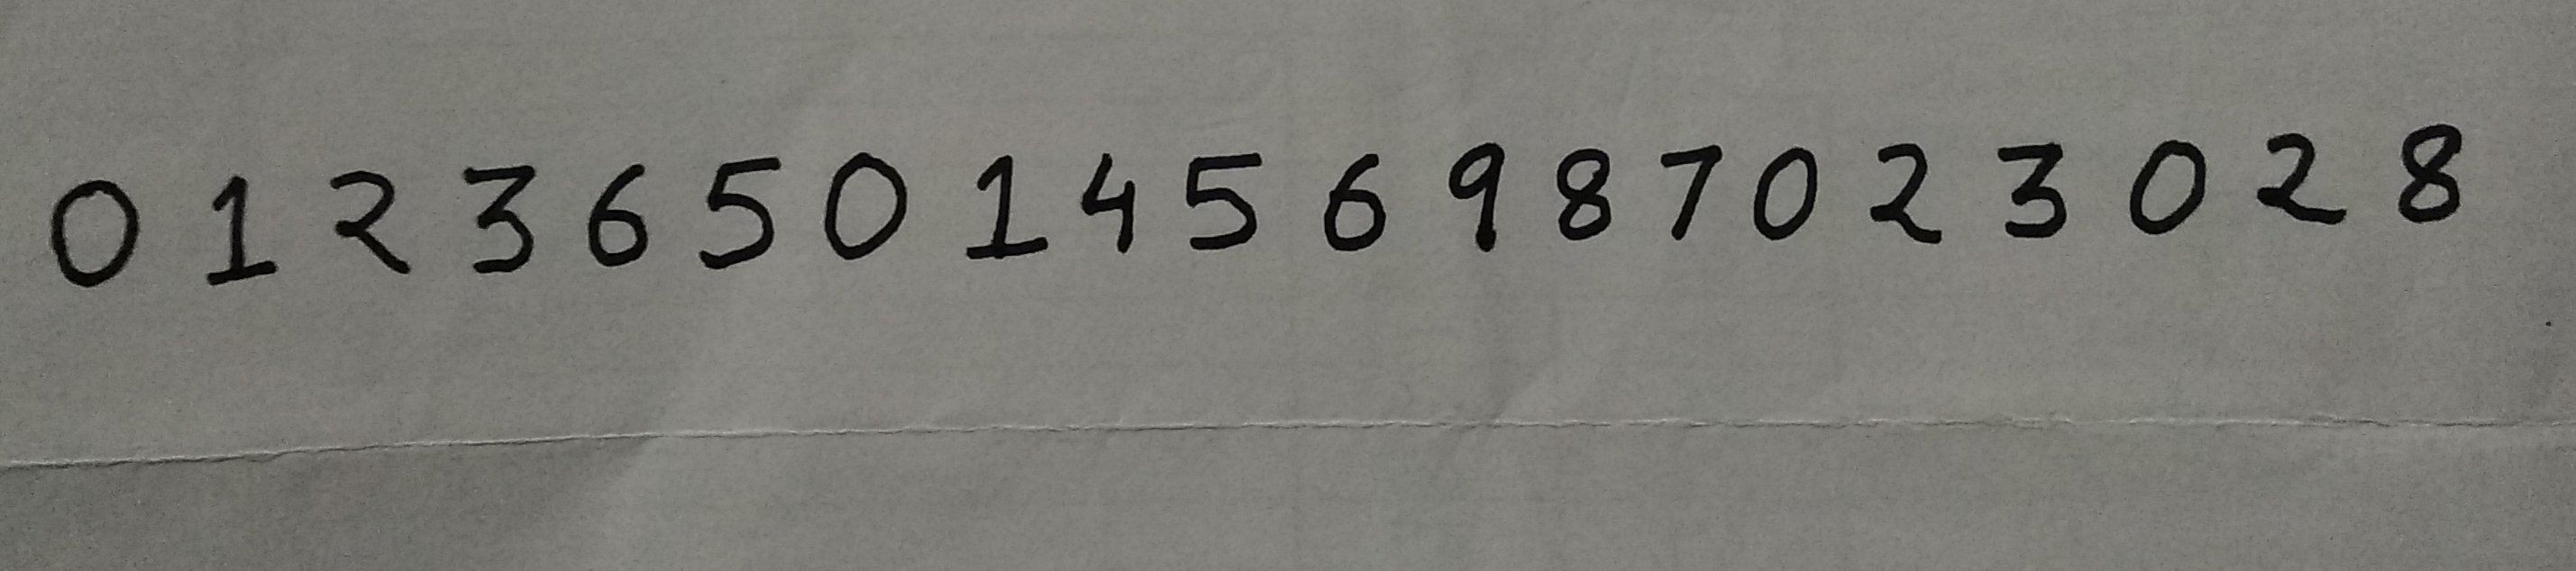 0 1 2 3 6 5 0 1 4 5 6 9 8 7 0 2 3 0 2 8